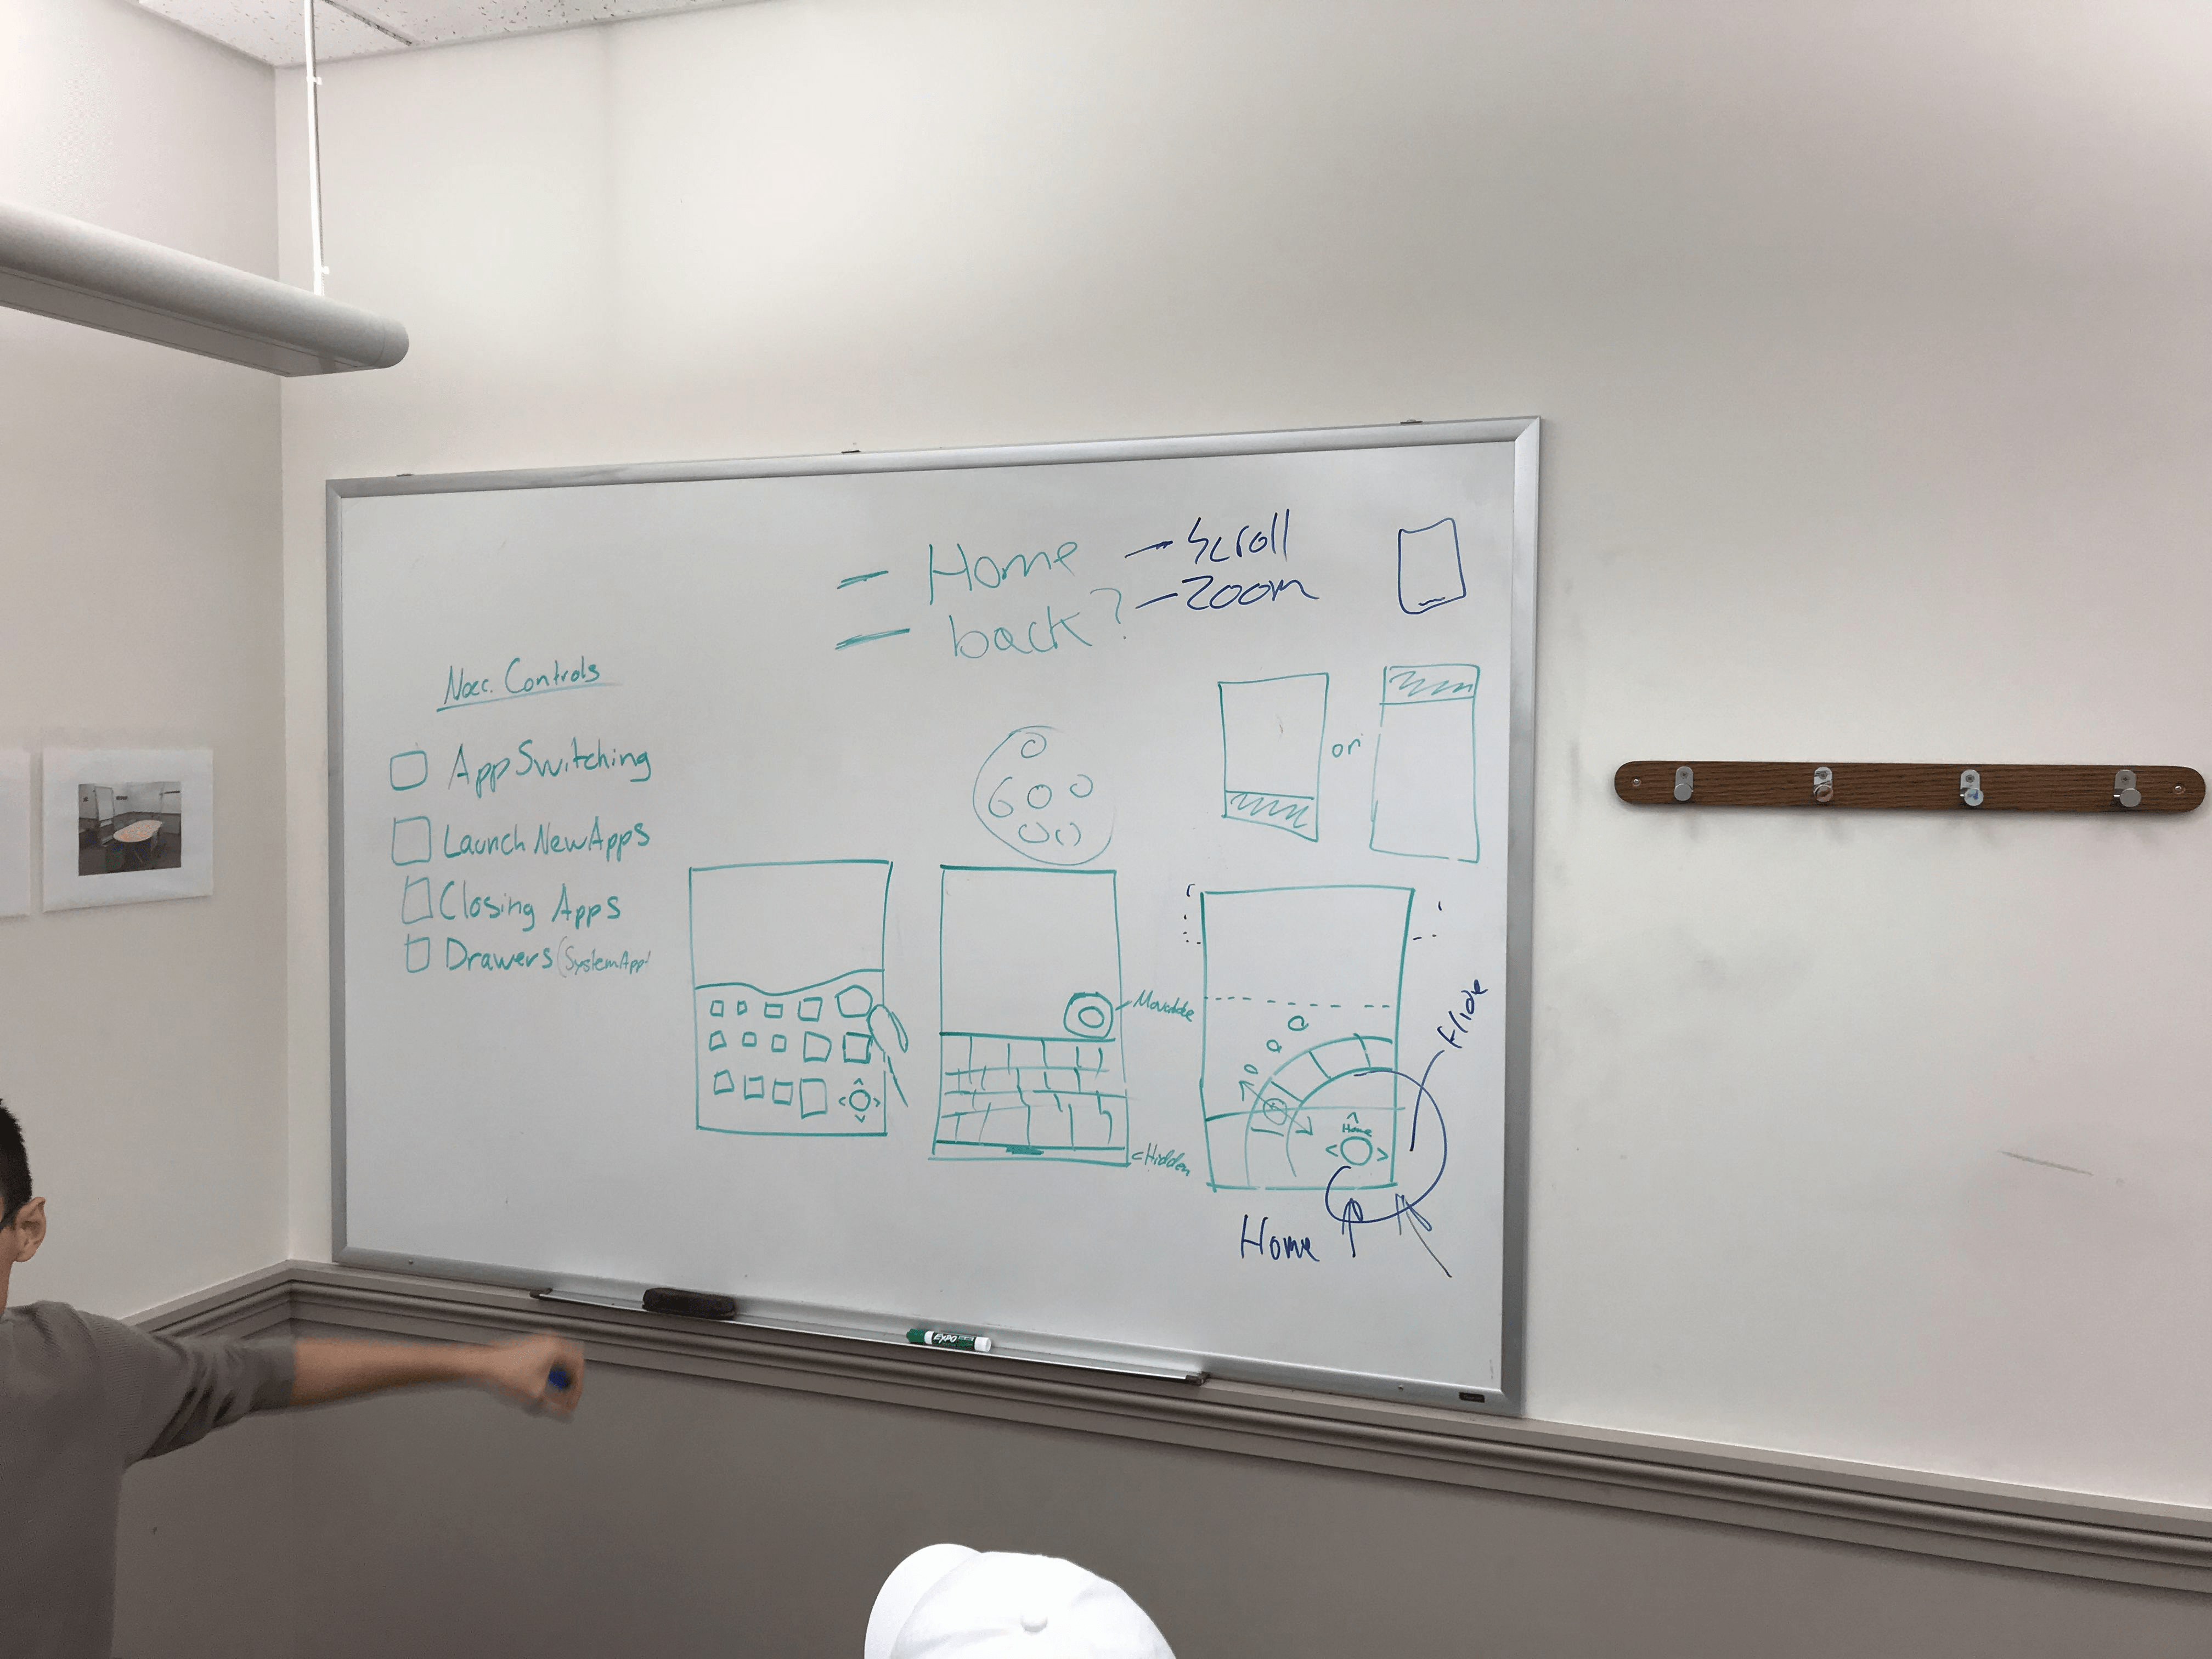 - Home
- back?
- Scroll
- Zoom
Necc. Controls
App Switching
Launch New Apps
Closing Apps
Drawers (System App
or
Movable
Hidden
Home
Home
EXPO